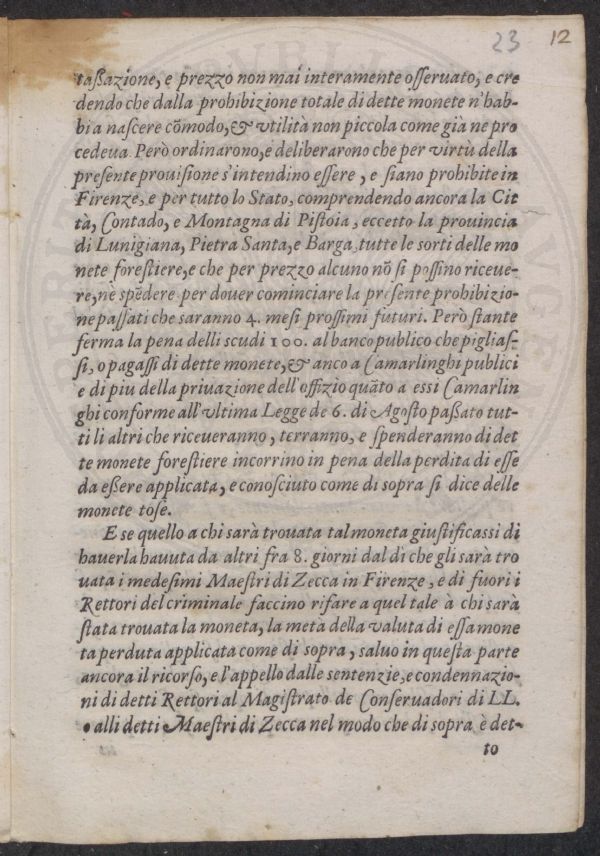 23 12
taßazione, e prezzo non mai interamente oſſeruato, e cre
dendo che dalla prohibizione totale di dette monete n'hab-
bia naſcere cōmodo, & vtilità non piccola come già ne pro
cedeua Però ordinarono, e deliberarono che per virtù della
preſente prouiſione s'intendino eſſere, e ſiano prohibite in
Firenze, e per tutto lo Stato, comprendendo ancora la Cit
tà, Contado, e Montagna di Piſtoia, eccetto la prouincia
di Lunigiana, Pietra Santa, e Barga, tutte le ſorti delle mo
nete foreſtiere, e che per prezzo alcuno nō ſi poſſino riceue-
re, nè ſpēdere per douer cominciare la preſente prohibizio-
ne paſſati che ſaranno 4. meſi proſſimi futuri. Però ſtante
ferma la pena delli ſcudi 100. al banco publico che pigliaſ-
ſi, o pagaſſi di dette monete, & anco a Camarlinghi publici
e di piu della priuazione dell'offizio quāto a eſſi Camarlin
ghi conforme all'vltima Legge de 6. di Agoſto paßato tut-
ti li altri che riceueranno, terranno, e ſpenderanno di det
te monete foreſtiere incorrino in pena della perdita di eſſe
da eßere applicata, e conoſciuto come di ſopra ſi dice delle
monete toſe.
E se quello a chi sarà trouata tal moneta giuſtificaſſi di
hauerla hauuta da altri fra 8. giorni dal di che gli ſarà tro
uata i medeſimi Maeſtri di Zecca in Firenze, e di fuori i
Rettori del criminale faccino rifare a quel tale à chi ſarà
ſtata trouata la moneta, la metà della valuta di eſſa mone
ta perduta applicata come di ſopra, ſaluo in queſta parte
ancora il ricorſo, e l'appello dalle ſentenzie, e condennazio-
ni di detti Rettori al Magiſtrato de Conſeruadori di LL.
o alli detti Maeſtri di Zecca nel modo che di ſopra è det-
to